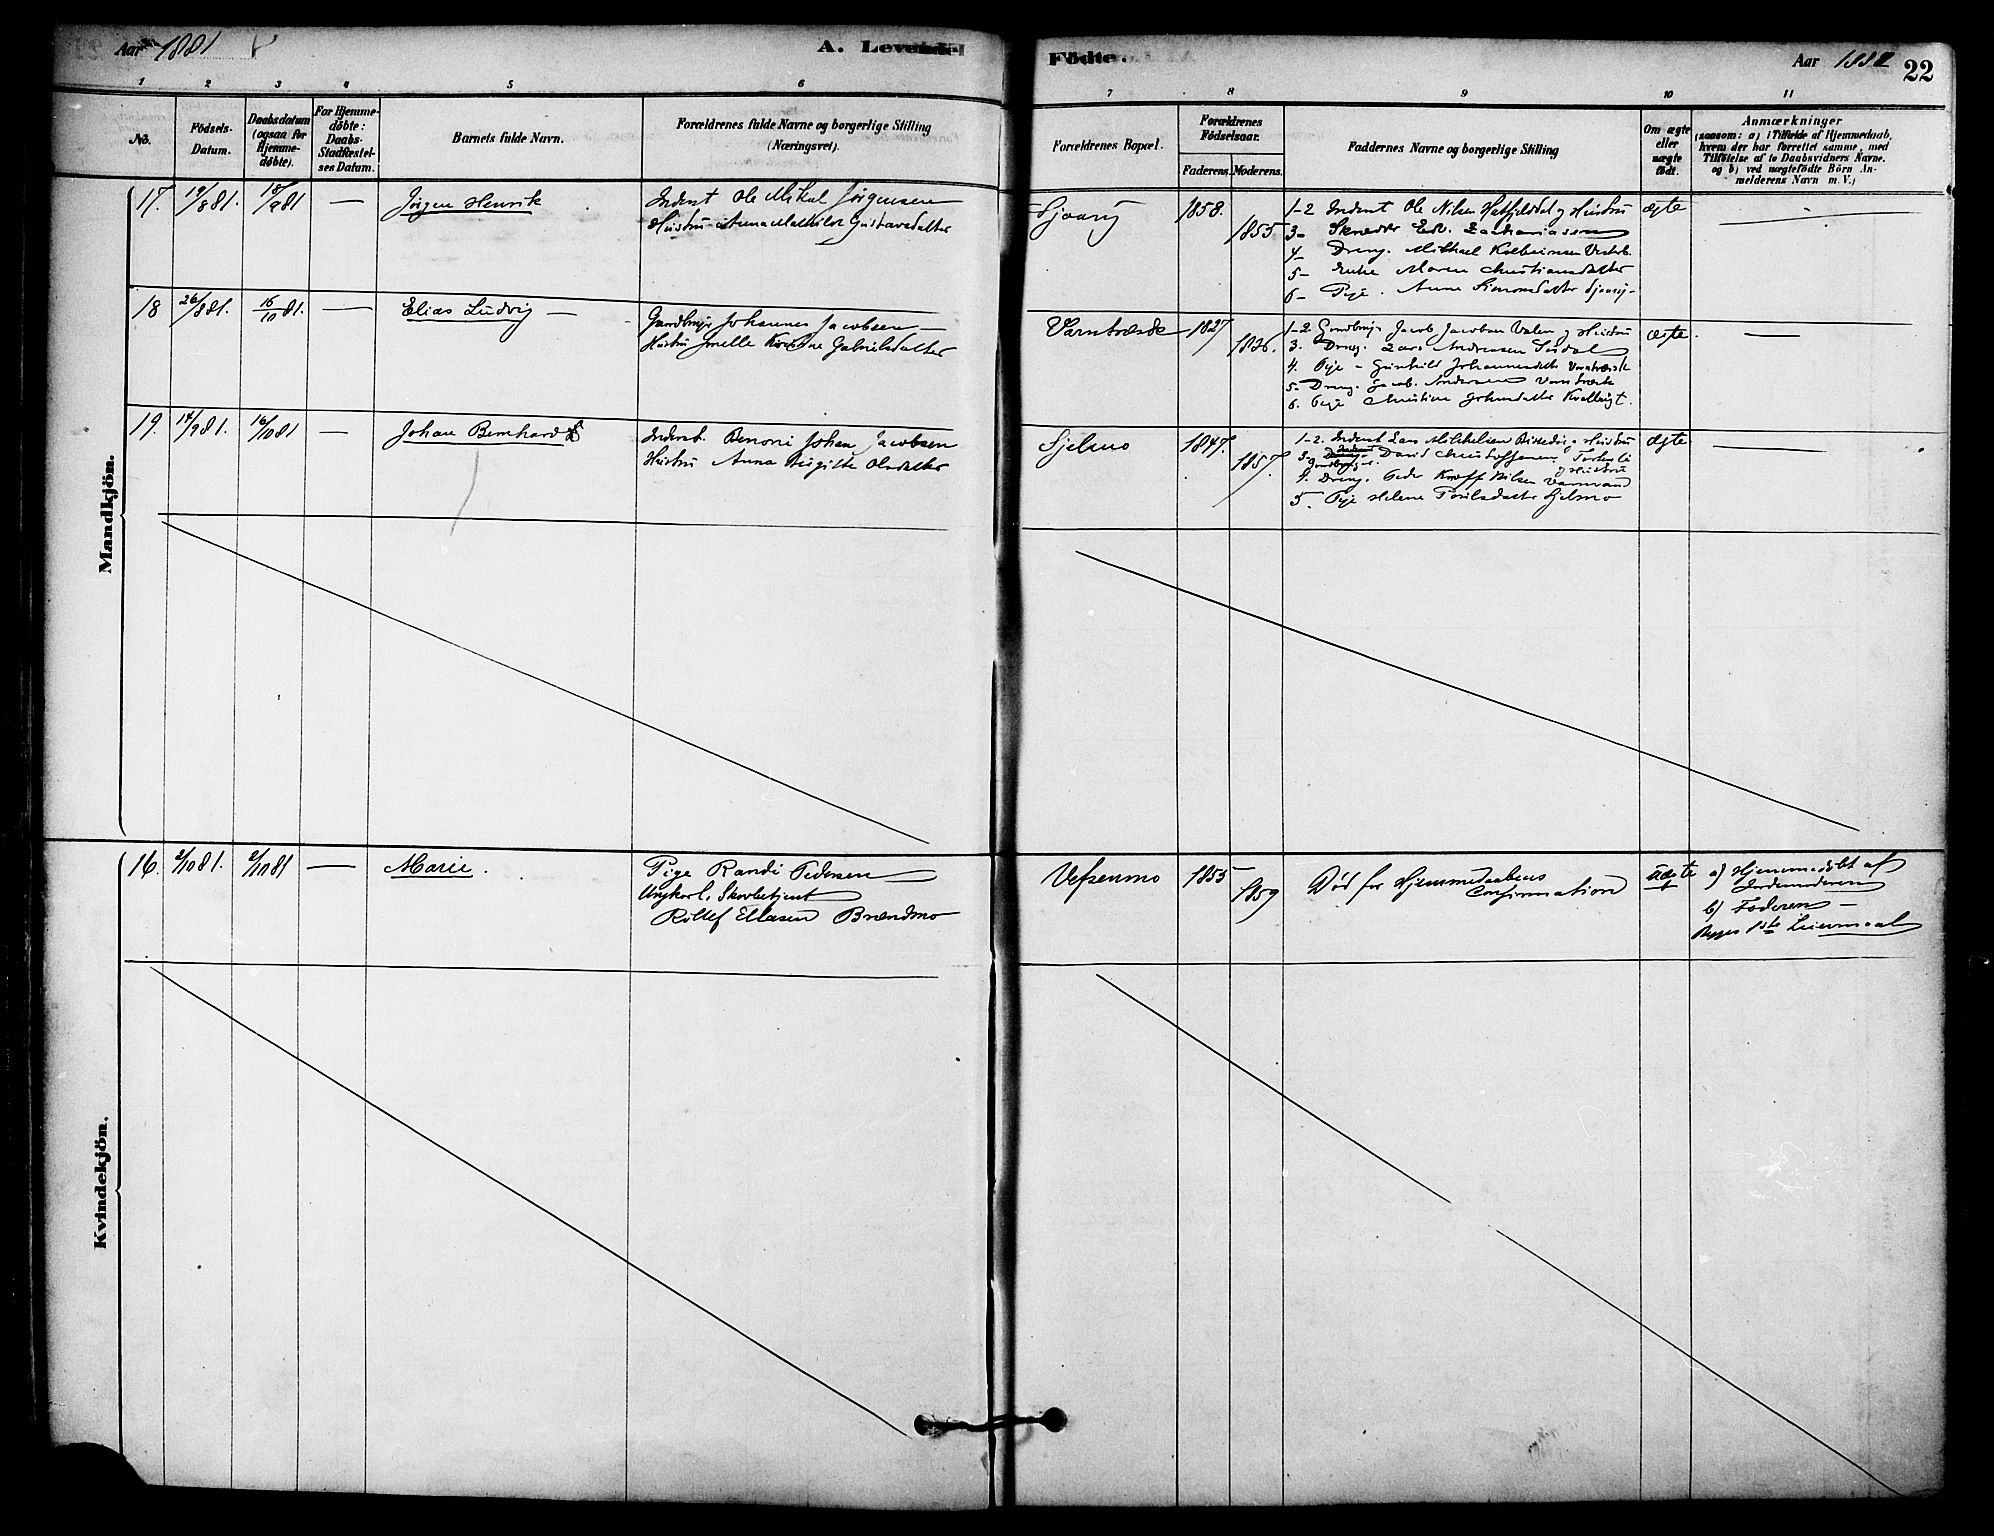 Aar 1881
A. Levende
Födte.
Aar 1881
22
1 2 3 4 5 6 7 8 9 10 11
No.
Födsels-
Datum.
Daabsdatum
(ogsaa for
Hjemme-
döbte).
For Hjemme-
döbte:
Daabs-
Stadfæstel-
ses Datum.
Barnets fulde Navn.
Forældrenes fulde Navne og borgerlige Stilling
(Næringsvei).
Forældrenes Bopæl.
Forældrenes
Födselsaar.
Faderens. Moderens.
Faddernes Navne og borgerlige Stilling
Om ægte
eller
uægte
födt.
Anmærkninger
(saasom: a) i Tilfælde af Hjemmedaab,
hvem der har forrettet samme, med
Tilföielse af to Daabsvidners Navne.
og b) ved uægtefödte Börn An-
melderens Navn m. V.)
Mandkjön.
17. 19/8 81. 18/9 81 — Jørgen Henrik
Inderst Ole Mikal Jørgensen
Hustru Anna Mathilde Gustavsdatter
1858.
1855
1-2 Inderst Ole Nilsen Hatfjelddal og Hustru
3- Skrædder Edv. Zachariassen
4- Dreng. Michael
5- Enke Maren Christiansdatter
6- Pige. Anne Simonsdatter
ægte
18 26/8 81. 16/10 81. — Elias Ludvig —
Gaardbruger Johannes Jacobsen —
Hustru Gabrielsdatter
Varntræsk 1827
1836.
1-2. Gaardbruger Jacob Jacobsen og Hustru
3. Dreng. Lars Andreassen
4. Pige - Gunhild Johannesdatter Varntræsk
5- Dreng. Jacob. Andersen Varntræsk
6. Pige Christine
ægte. —
19. 14/9 81. 16/10 81 — Johan Bernhard
Inderst. Benoni Johan Jacobsen
Hustru Anna Birgitte Olsdatter
Sjelmo 1847.
1857.
1-2. Inderst Lars Mikkelsen og Hustru
3- David Christophersen
og Hustru
4. Dreng. Peder
5. Pige Helene Sjelmo
ægte —
Kvindekjön.
16. 2/10 81. 2/10 81 — Marie.
Pige Randi Pedersen
Ungkarl, Skovbetjent
Rollef Ellasen Brændmo
Vefsenmo 1855
1859
Død før Hjemmedaabens
Confirmation
uægte
a) Hjemmedøbt af
Jordemoderen
b) Faderen —
Begges 1ste Leiermaal